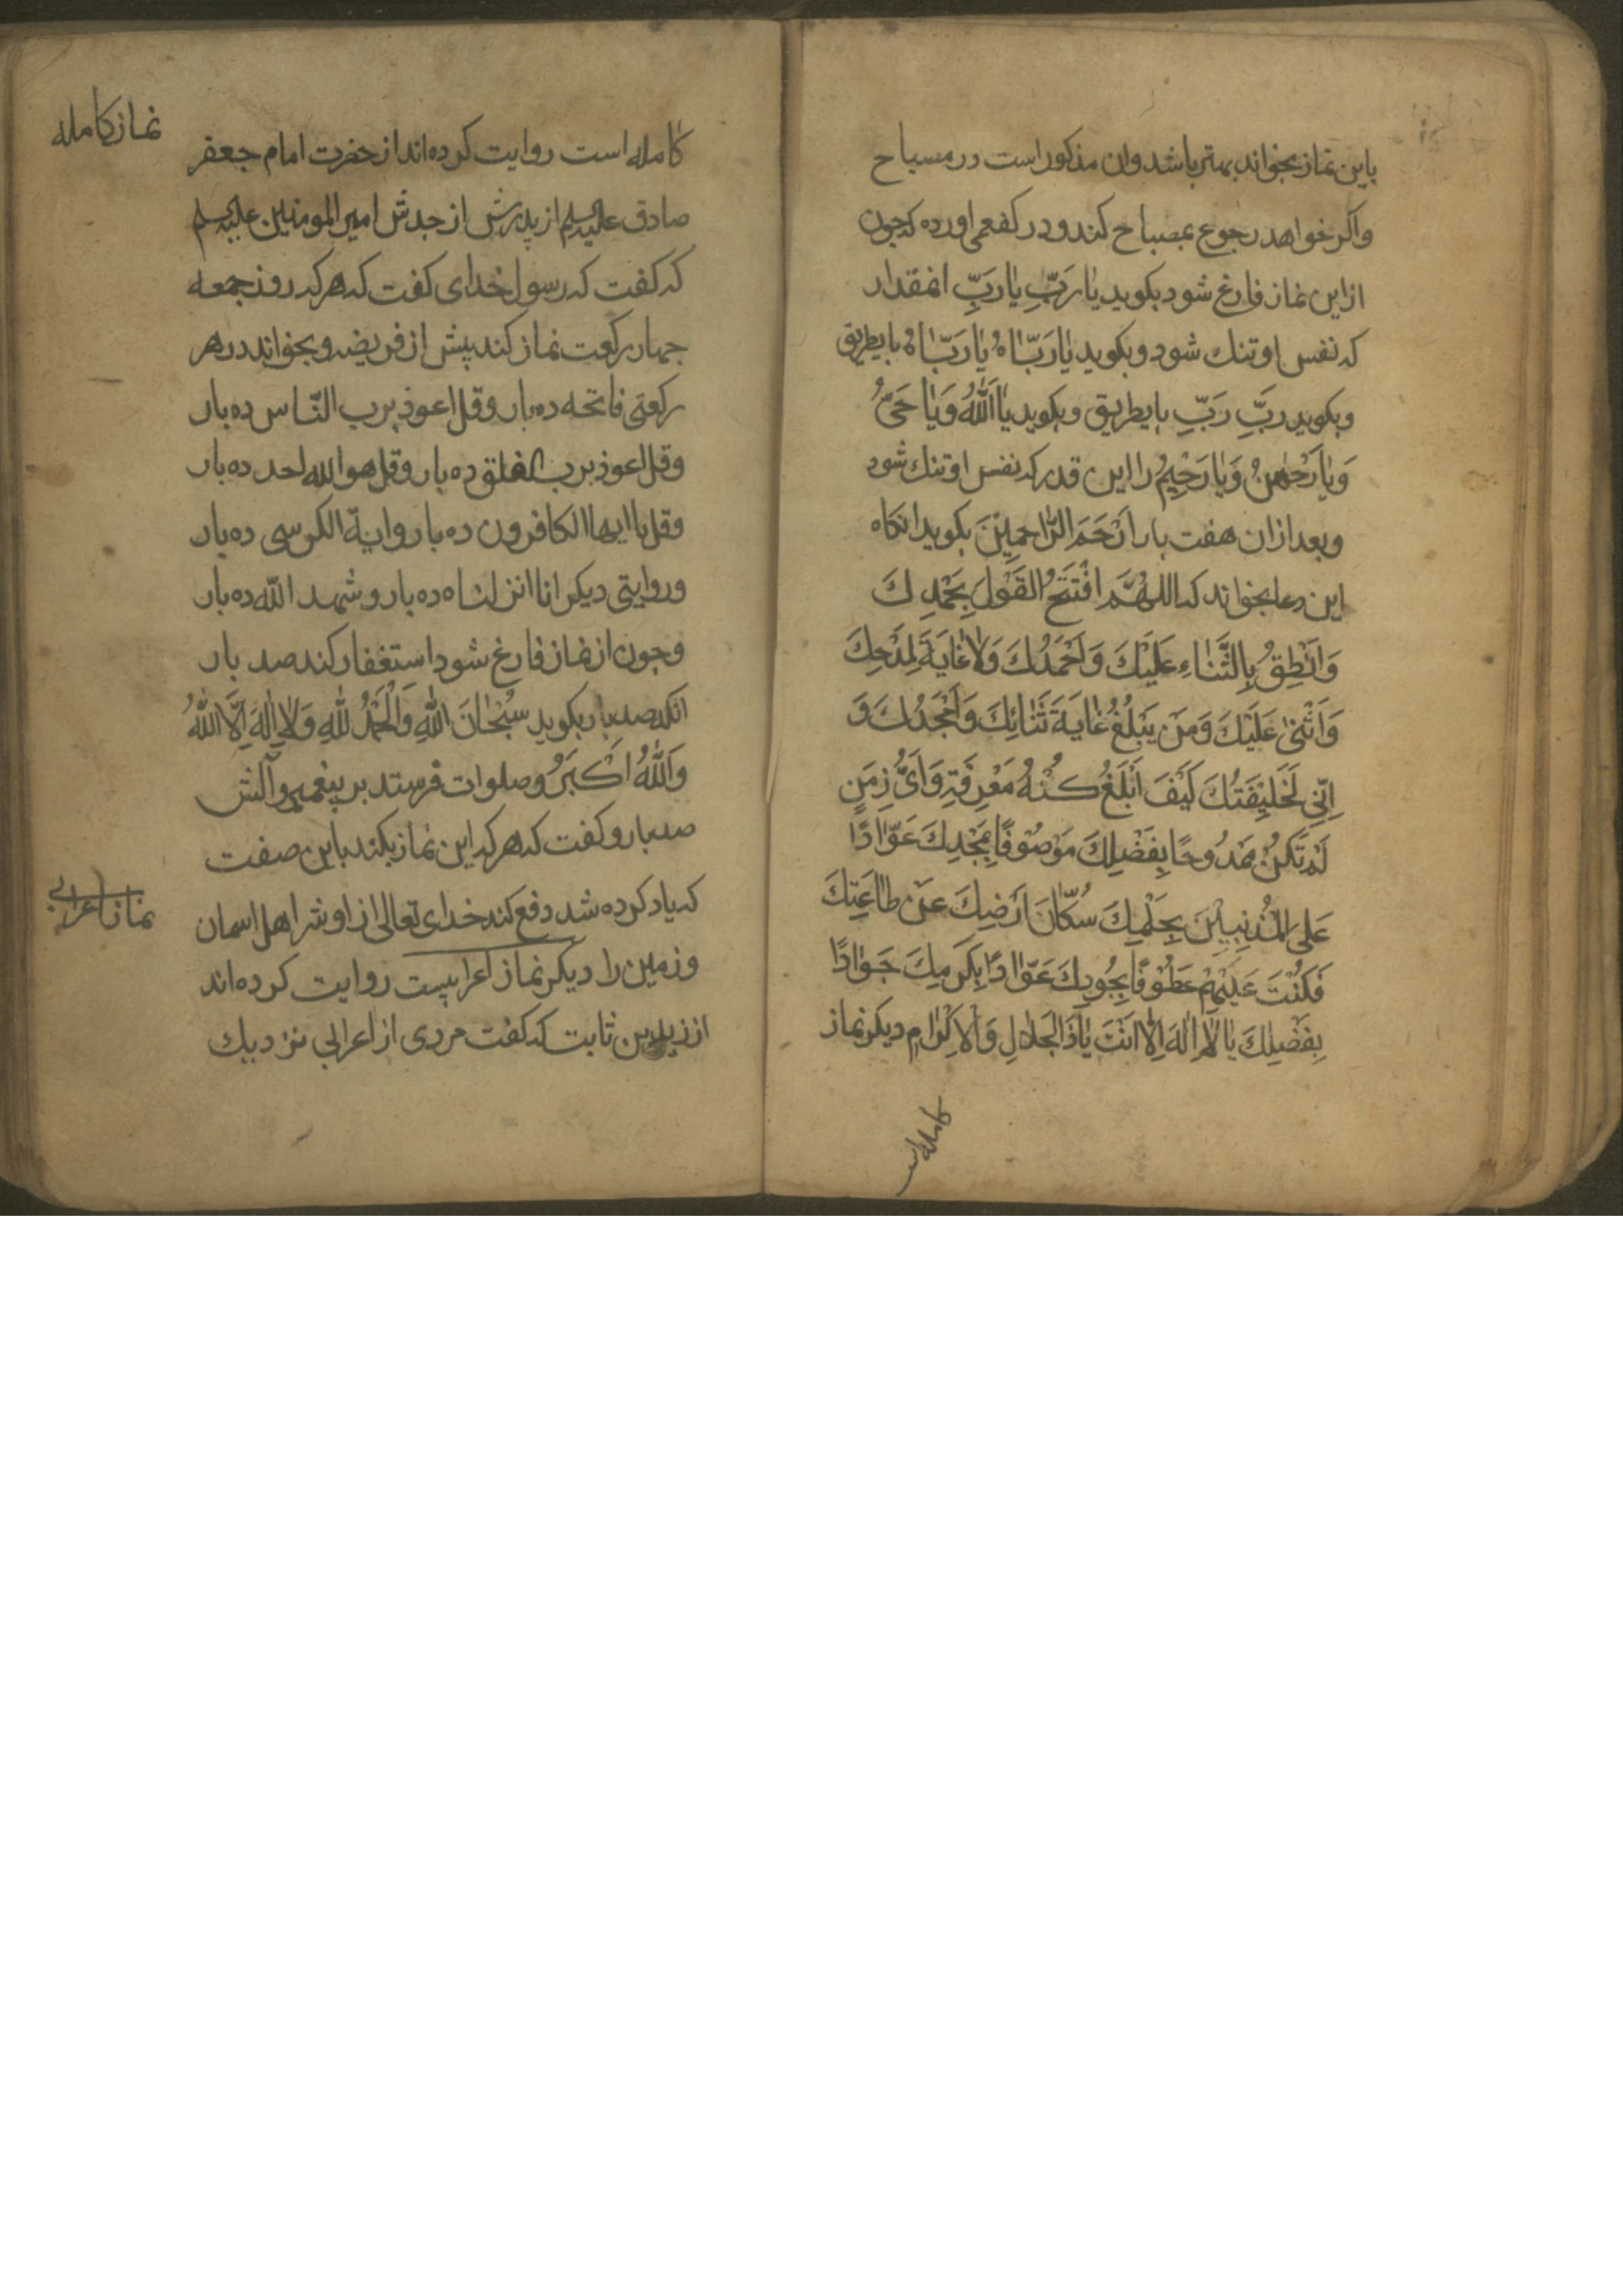 باین نماز بخواند بهتر باشد وان مذکور است در مسباح
واکر خواهد رجوع بمصباح کند ودر کفعمی اورده که چون
ازاین نماز فارغ شود بکوید یٰا رَبِّ یٰا رَبِّ انمقدار
که نفس او تنك شود وبکوید یٰا رَبّٰاهُ یٰا رَبّٰاهُ بایطریق
وبکوید رَبِّ رَبِّ بایطریق وبکوید یٰا اَللّٰهُ وَیٰا حَیُّ
وَیٰا رَحْمٰنُ وَیٰا رَحْیِمُ را این قدر که نفس او تنك شود
وبعد ازان هفت بار اَرْحَمَ الرّٰاحِمِیْنَ بکوید انکاه
این دعا بخواند که اللهُمَّ افْتَتِحُ القَوْلَ بِحَمْدِكَ
وَانْطِقُ بِالثَّنٰاءِ عَلَیْكَ وَاَحْمَدُكَ وَلاٰ غٰایَةَ لِمَدْحِكَ
وَاَثْنیٰ عَلَیْكَ وَمَنْ یَبْلُغُ غٰایَةَ ثَنٰائِكَ وَاَمْجَدُكَ وَ
اِنّیِ لَخَلیِقَتُكَ کَیْفَ اَبْلَغُ کُنْهُ مَعْرِفَةِ وَاَیُّ زِمَنٍ
لَمْ تَکُنْ مَمْدُوحًا بِفَضْلِكَ مَوْصُوْفًا بِمَجْدِكَ عَوّٰادًا
عَلیَ المُذْنِبیِْنَ بِحَلْمِكَ سُکّٰانَ اَرْضِكَ عَنْ طٰاعَتِكَ
فَکُنْتَ عَلَیْهِمْ عَطُوْفًا بِجُودِكَ عَوّٰادًا بِکَرَمِكَ جَوٰادًا
بِفَضْلِكَ یٰا لاٰ اِلٰهَ اِلاّٰ اَنْتَ یٰا ذَا الجَلاٰلِ وَالاِکْرٰامِ دیکر نماز
کامله است
نماز کامله
کامله است روایت کرده‌اند از حضرت امام جعفر
صادق علیه‌السلم از پدرش از جدش امیر المومنین علیه‌السلم
که کفت که رسول خدای کفت که هر که روز جمعه
چهار رکعت نماز کند پیش از فریضه و بخواند در هر
رکعتی فاتحه ده بار وقل اعوذ برب النّاس ده بار
وقل اعوذ برب الفلق ده بار وقل هو الله احد ده بار
وقل یا ایها الکافرون ده بار وایة الکرسی ده بار
وروایتی دیکر انا انزلناه ده بار وشهد اللّه ده بار
وچون از نماز فارغ شود استغفار کند صد بار
انکه صد بار بکوید سُبْحٰانَ اللّٰهِ وَالْحَمْدُ لِلّٰهِ وَلاٰ اِلٰهَ اِلَّا اللّٰهُ
وَاَللّٰهُ اَکْبَرُ وصلوات فرستد بر پیغمبر وآلش
صد بار و کفت که هر که این نماز بکند باین صفت
که یاد کرده شد دفع کند خدای تعالی از او شر اهل اسمان
نماز اعرابی
وزمین را دیکر نماز اعرابیست روایت کرده‌اند
از زید بن ثابت که کفت مردی از اعرابی نزدیك